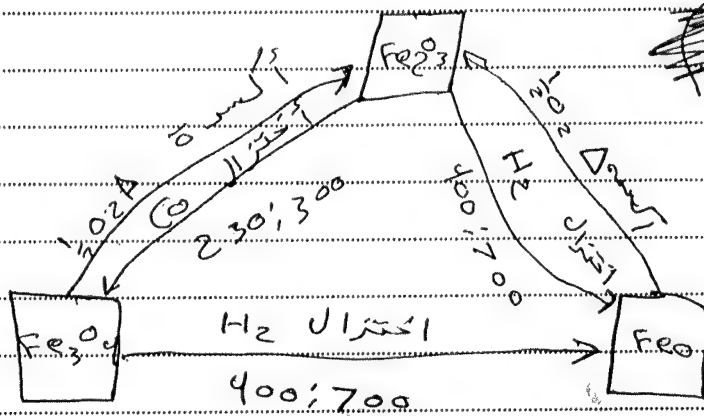 Fe2O3
أكسدة
½ O2 Δ
اختزال
CO
230 : 300
½ O2
أكسدة Δ
H2
اختزال
400 : 700
Fe3O4
اختزال H2
400 : 700
FeO